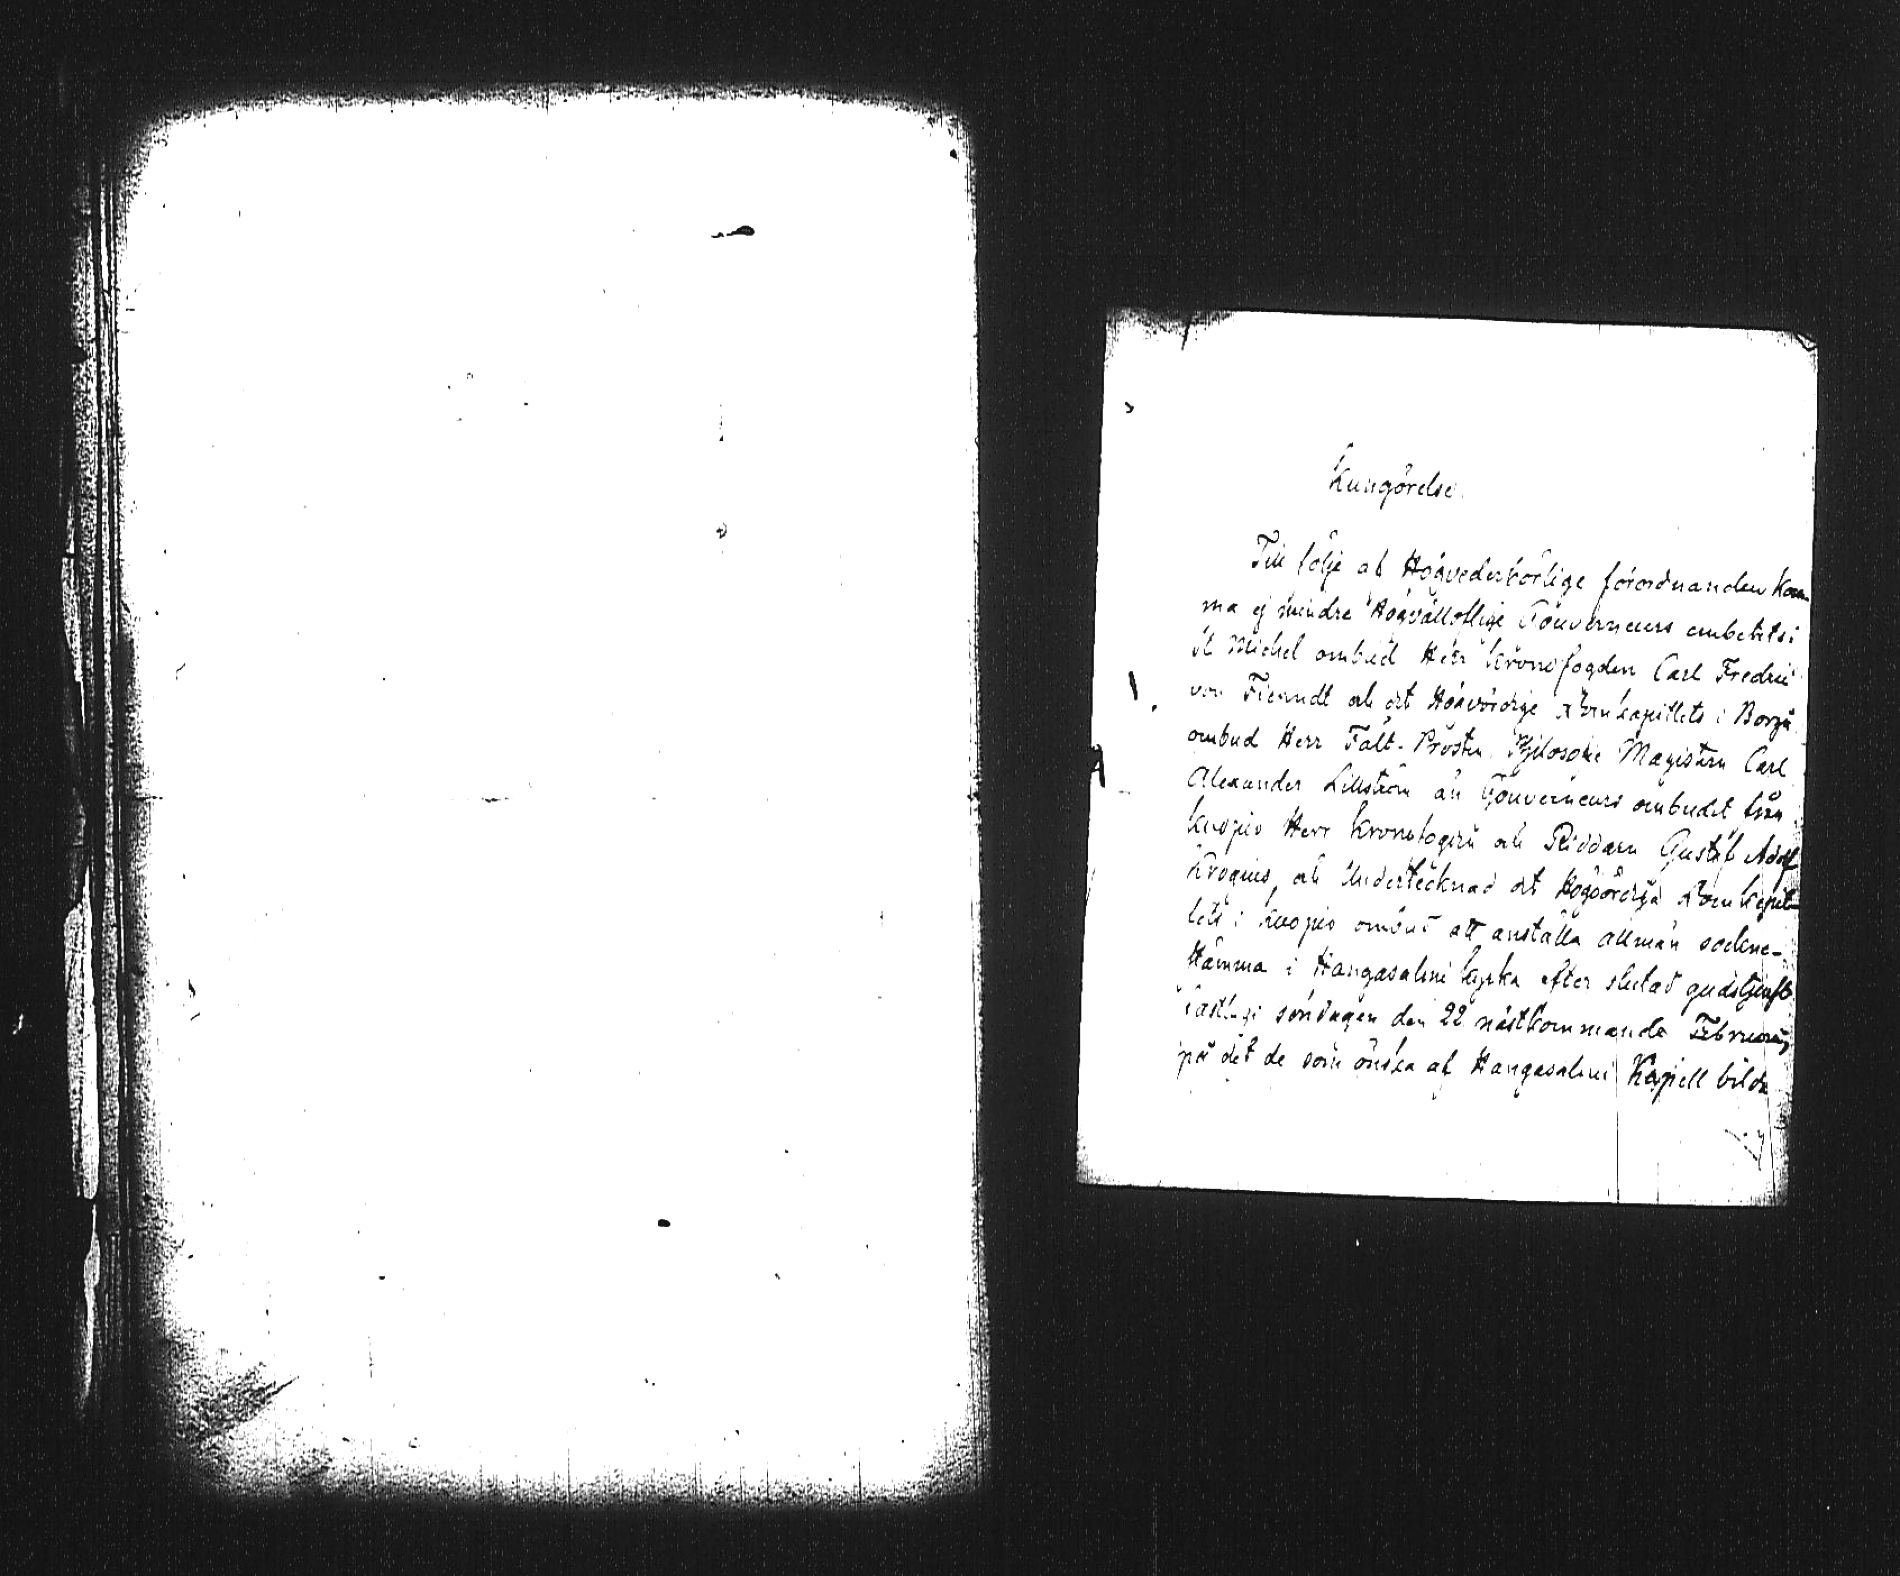 Kungörelse.
Till följe af Högvederbörlige förordnanden kom-
ma ej mindre Högvällofliga Gouverneurs embetets i
St Michel ombud Herr Kronofogden Carl Fredric
von Fieandt och det Högvördige Domkapitlets i Borgå
ombud Herr Fält-Prosten Philosophie Magistern Carl
Alexander Lillström än Gouverneurs ombudet från
Kuopio Herr Kronofogden och Riddaren Gustaf Adolf
Krogius, och Undertecknad det Högvördiga Domkapit-
lets i Kuopio ombud att anställa allmän sockne-
stämma i Hangasalmi kyrka efter slutad gudstjenst
söndagen den 22 nästkommande Februarii,
på det de som önska af Hangasalmi Kapell bilda